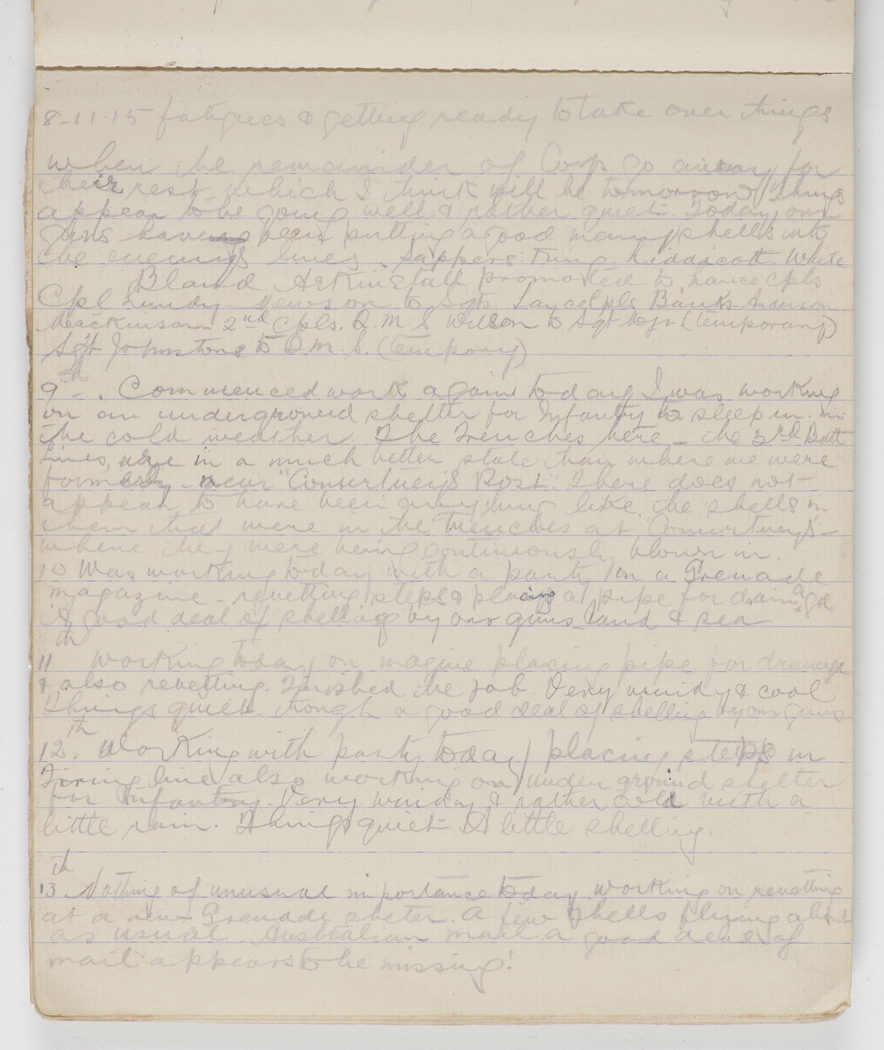 8-11-15 fatigues & getting ready to take over things
when the remainder of Corp go away for
their rest which I think will be tomorrow. Things
appear to be going well & rather quiet. Today our
guns have been putting a good many shells into
the enemy's lines. Sappers King Hiddicott White
Bland Askin Stalf promoted to Lance Cpls
Cpl Lundy to Sgt. Lance Cpls Banks Anderson
Mackinson 2nd Cpls. Q.M.S Wilson to Sgt Major (temporary)
Sgt Johnstone to Q.M.S. (tempory)
9th. Commenced work again today I was working
on an underground shelter for Infantry to sleep in in
the cold weather. The Trenches here - the 3rd Batt
Lines, are in a much better state than where we were
formerly near "Courtney's Post". There does not
appear to have been anything like the shells in
them that were in the trenches at Courtney's -
where they were being continuously blown in.
10 Was working today with a party on a Grenade
magazine - revetting steps & placing a pipe for drainage
A good deal of shelling by our guns land & sea
11th Working today on magine placing pipe for drainage
& also revetting. Finished the job. Very windy & cool
Things quiet though a good deal of shelling by our guns
12th. Working with party today placing steps in
Firing line also working on under ground shelter
for Infantry. Very windy & rather cold with a
little rain. Things quiet A little shelling.
13th Nothing of unusual importance today working on revetting
at a new Grenade A few shells flying about
as usual. Australian mail a good deal of
mail appears to be missing!